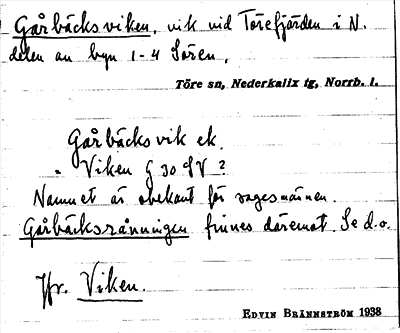 Gårbäcksviken, vik vid Törefjärden i N.
delen av byn 1-4 Sören,
Töre sn, Nederkalix tg, Norrb. l.
Gårbäcksvik ek.
" Viken G 30 SV ?
Namnet är obekant för sagesmannen.
Gårbäcksrånningen finnes däremot. Se d.o.
Jfr. Viken.
EDVIN BRÄNNSTRÖM 1938